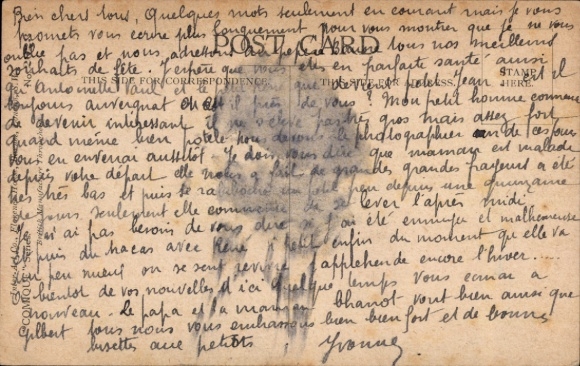 Bien chers tous, Quelques mots seulement en courant mais je vous
promets vous ecrire plus longuement pour vous montrer que je ne vous
oublie pas et nous adressons à tous nos meilleurs
POST CARD
souhaits de fête. J'espère que vous êtes en parfaite santé ainsi
THIS SIDE FOR CORRESPONDENCE.
THIS SIDE FOR ADDRESS.
STAMP HERE.
qu'Antoinette Paul et que devient petit Jean est il
toujours auvergnat ou est il près de vous ? Mon petit homme commence
de devenir intéressant il ne s'élève pas très gros mais assez fort
quand même bien potelé nous devons le photographier un de ces jours
vous en enverrai aussitôt. Je dois vous dire que maman est malade
depuis votre départ elle nous a fait de grandes grandes frayeurs a été
très très bas et puis se un petit peu depuis une quinzaine
jours, seulement elle commence de se lever l'après midi
j'ai pas besoin de vous dire si j'ai été ennuyée et malheureuse
puis du tracas avec René petit enfin du moment qu'elle va
un peu mieux on se sent revivre j'appréhende encore l'hiver......
bientot de vos nouvelles d'ici quelque temps vous ecrirai a
nouveau. Le papa et la maman bhanot vont bien ainsi que
Gilbert tous nous vous embrassons bien bien fort et de bonnes
bisettes aux petits Yvonne
COMIQUE